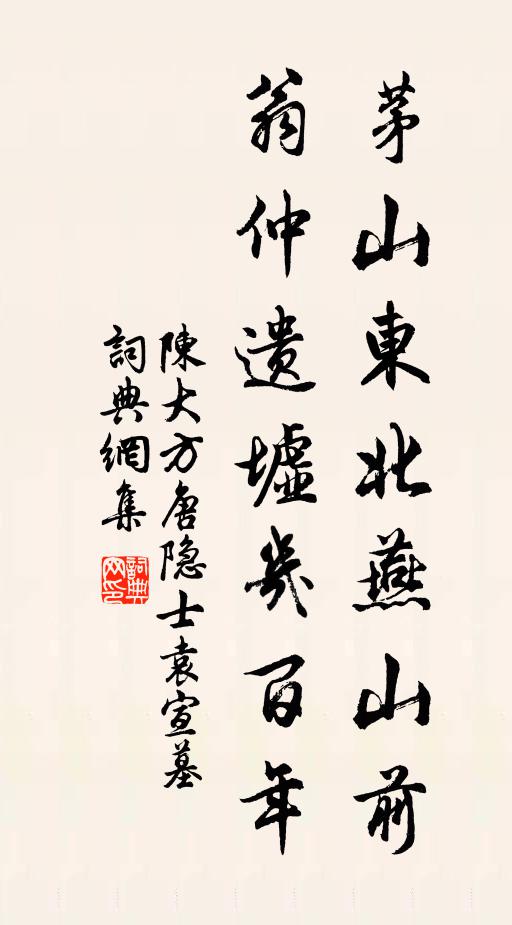 茅山東北燕山前
翁仲遺墟幾百年
陳大方唐隐士袁宣墓
詞典網集
詞典网印